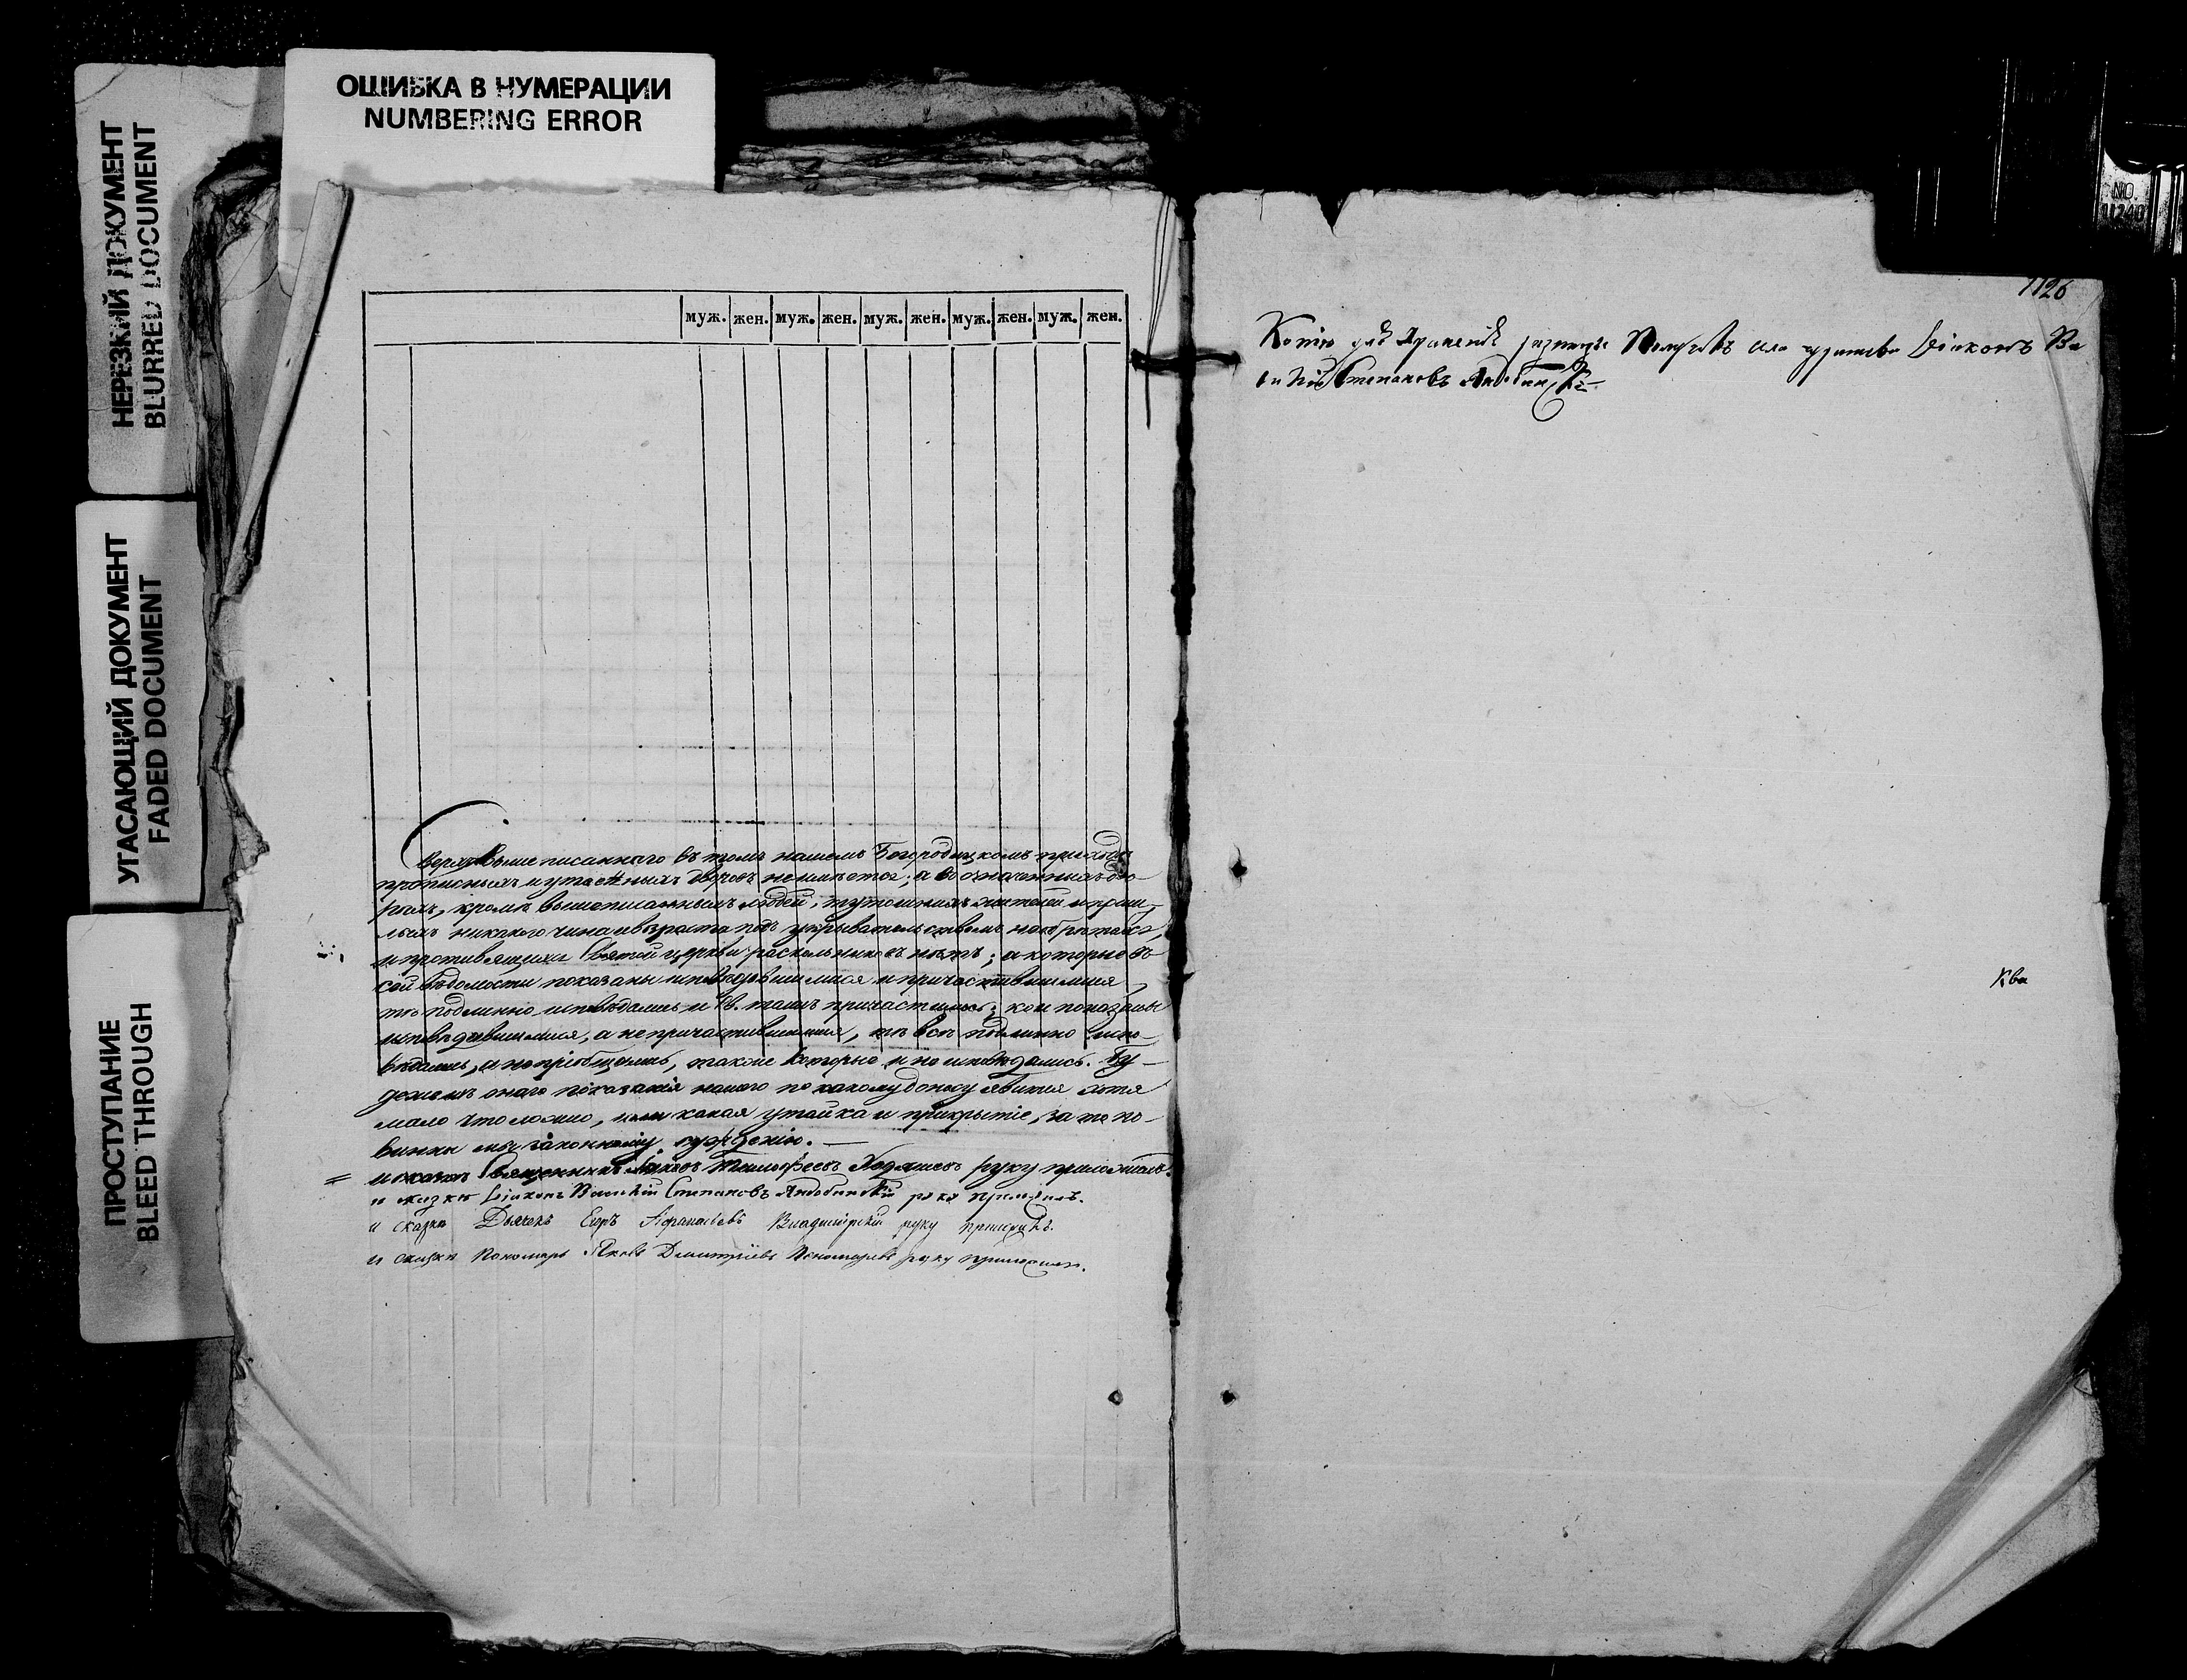 ОШИБКА В НУМЕРАЦИИ
NUMBERING ERROR
НЕРЕЗКИЙ ДОКУМЕНТ
BLURRED DOCUMENT
УГАСАЮЩИЙ ДОКУМЕНТ
FADED DOCUMENT
ПРОСТУПАНИЕ
BLEED THROUGH
NO.
11240
муж. жен. муж. жен. муж. жен. муж. жен. муж. жен.
Сверхъ вышеписаннаго въ томъ нашемъ Богородицкомъ приходѣ
прописныхъ и утаенныхъ дворовъ неимѣется; а во означенныхъ дво-
рахъ, кромѣ вышеписанныхъ людей, тутошнихъ жителей и приш-
лыхъ никакого чина и возраста подъ укрывательствомъ
и противящихся Святой церкви раскольниковъ нѣтъ; а которые въ
сей вѣдомости показаны исповѣдавшимися и причастившимися
тѣ подлинно исповѣдались и Св. таинъ причастились; кои показаны
исповѣдавшимися, а не причастившимися, тѣ всѣ подлинно испо-
вѣдались, а не пріобщались, также которые и не исповѣдались. Бу-
де въ семъ онаго показанія нашего по какому доносу явится хотя
мало что ложно, или какая утайка и прикрытіе, за то по-
винны мы законному сужденію. —
Священникъ Тимофеевъ руку приложилъ.
и сказкѣ Діаконъ Василій Степановъ руку приложилъ.
и сказкѣ Дьячекъ Егоръ Афанасьевъ Владимірскій руку приложилъ.
и сказкѣ Пономарь Яковъ Дмитріевъ Пономаревъ руку приложилъ.
1126
Копію для разницы діаконъ Ва
силій Степановъ